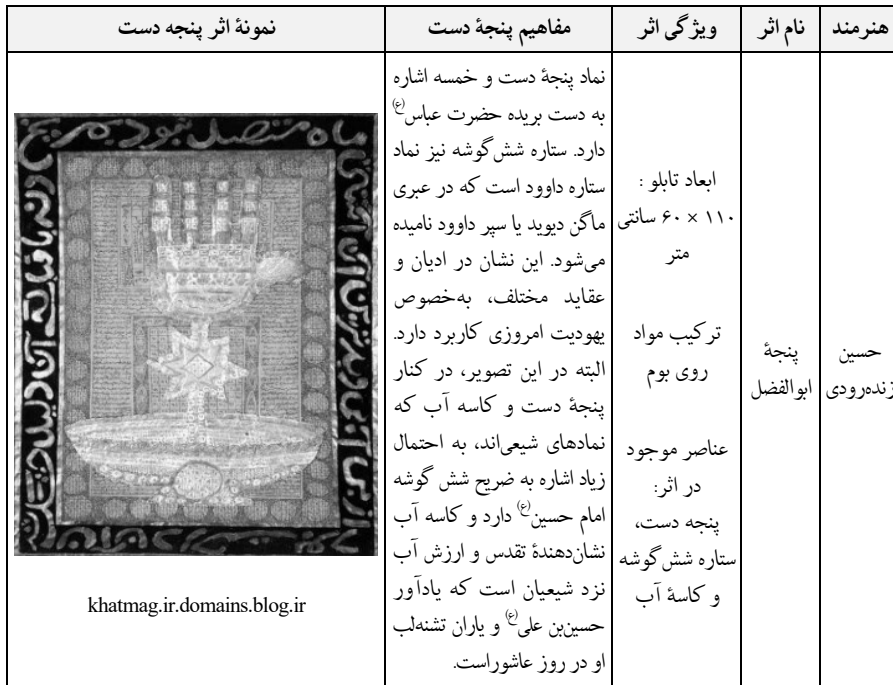 هنرمند
نام اثر
ویژگی اثر
مفاهیم پنجۀ دست
نمونۀ اثر پنجه دست
حسین
زنده‌رودی
پنجۀ
ابوالفضل
ابعاد تابلو :
۱۱۰ × ۶۰ سانتی
متر
ترکیب مواد
روی بوم
عناصر موجود
در اثر:
پنجه دست،
ستاره شش‌گوشه
و کاسۀ آب
نماد پنجۀ دست و خمسه اشاره
به دست بریده حضرت عباس(ع)
دارد. ستاره شش‌گوشه نیز نماد
ستاره داوود است که در عبری
ماگن دیوید یا سپر داوود نامیده
می‌شود. این نشان در ادیان و
عقاید مختلف، به‌خصوص
یهودیت امروزی کاربرد دارد.
البته در این تصویر، در کنار
پنجۀ دست و کاسه آب که
نمادهای شیعی‌اند، به احتمال
زیاد اشاره به ضریح شش گوشه
امام حسین(ع) دارد و کاسه آب
نشان‌دهندۀ تقدس و ارزش آب
نزد شیعیان است که یادآور
حسین‌بن علی(ع) و یاران تشنه‌لب
او در روز عاشوراست.
khatmag.ir.domains.blog.ir